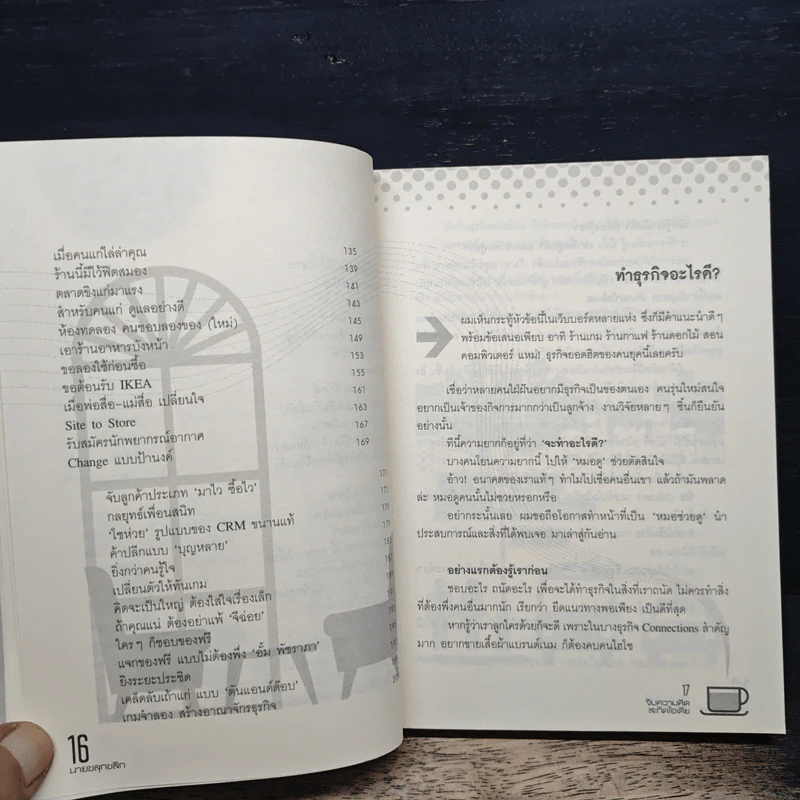 เมื่อคนแก่ไล่ล่าคุณ 135
ร้านนี้มีไว้ฟิตสมอง 139
ตลาดขิงแก่มาแรง 141
สำหรับคนแก่ ดูแลอย่างดี 143
ห้องทดลอง คนชอบลองของ (ใหม่) 145
เอาร้านอาหารบังหน้า 149
ขอลองใช้ก่อนซื้อ 153
ขอต้อนรับ IKEA 155
เมื่อพ่อสื่อ-แม่สื่อ เปลี่ยนใจ 161
Site to Store 163
รับสมัครนักพยากรณ์อากาศ 167
Change แบบป้านงค์ 169
จับลูกค้าประเภท 'มาไว ซื้อไว' 171
กลยุทธ์เพื่อนสนิท 173
'โชห่วย' รูปแบบของ CRM ขนานแท้ 175
ค้าปลีกแบบ 'บุญหลาย' 179
ยิ่งกว่าคนรู้ใจ 183
เปลี่ยนตัวให้ทันเกม
คิดจะเป็นใหญ่ ต้องใส่ใจเรื่องเล็ก
ถ้าคุณแน่ ต้องอย่าแพ้ 'จีฉ่อย'
ใครๆ ก็ชอบของฟรี
แจกของฟรี แบบไม่ต้องพึ่ง 'อั้ม พัชราภา'
ยิงระยะประชิด
เคล็ดลับเถ้าแก่ แบบ 'ตันแอนด์ต๊อบ'
เกมจำลอง สร้างอาณาจักรธุรกิจ
16
นายขลุกขลิก
ทำธุรกิจอะไรดี?
ผมเห็นกระทู้หัวข้อนี้ในเว็บบอร์ดหลายแห่ง ซึ่งก็มีคำแนะนำดีๆ
พร้อมข้อเสนอเพียบ อาทิ ร้านเกม ร้านกาแฟ ร้านดอกไม้ สอน
คอมพิวเตอร์ แหม! ธุรกิจยอดฮิตของคนยุคนี้เลยครับ
เชื่อว่าหลายคนใฝ่ฝันอยากมีธุรกิจเป็นของตนเอง คนรุ่นใหม่สนใจ
อยากเป็นเจ้าของกิจการมากกว่าเป็นลูกจ้าง งานวิจัยหลายๆ ชิ้นก็ยืนยัน
อย่างนั้น
ทีนี้ความยากก็อยู่ที่ว่า 'จะทำอะไรดี?'
บางคนโยนความยากนี้ ไปให้ 'หมอดู' ช่วยตัดสินใจ
อ้าว! อนาคตของเราแท้ๆ ทำไมไปเชื่อคนอื่นเขา แล้วถ้ามันพลาด
ล่ะ หมอดูคนนั้นไม่ช่วยหรอกหรือ
อย่ากระนั้นเลย ผมขอถือโอกาสทำหน้าที่เป็น 'หมอช่วยดู' นำ
ประสบการณ์และสิ่งที่ได้พบเจอ มาเล่าสู่กันอ่าน
อย่างแรกต้องรู้เราก่อน
ชอบอะไร ถนัดอะไร เพื่อจะได้ทำธุรกิจในสิ่งที่เราถนัด ไม่ควรทำสิ่ง
ที่ต้องพึ่งคนอื่นมากนัก เรียกว่า ยึดแนวทางพอเพียง เป็นดีที่สุด
หากรู้ว่าเราลูกใครด้วยก็จะดี เพราะในบางธุรกิจ Connections สำคัญ
มาก อยากขายเสื้อผ้าแบรนด์เนม ก็ต้องคบคนไฮโซ
17
จิบความคิด
สะกิดไอเดีย